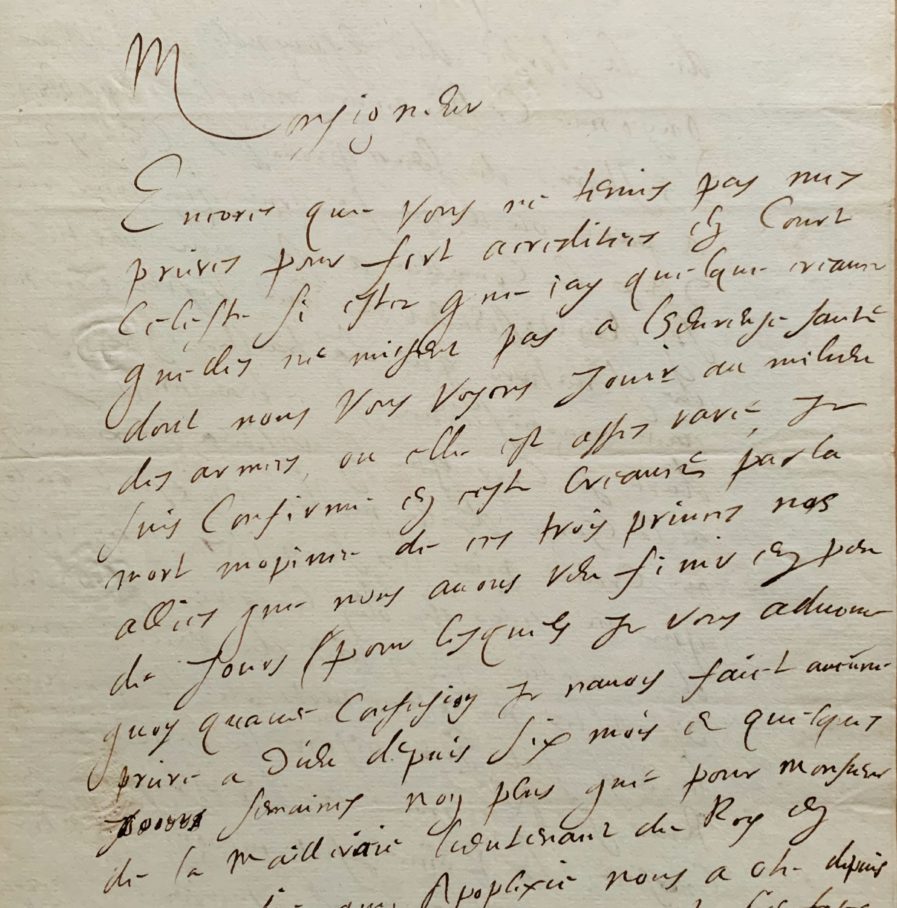 Monsigneur
Encores que vous ne tenies pas mes
prieres pour fort acreditees en Court
Celeste si estce que iay quelque creance
quelles ne nuisent pas a lheureuse santé
dont nous vous voyons Jouir au milieu
des armees, ou elle est asses rare, Je
suis Confirmé en ceste Creance par la
mort inopinee de ces trois princes nos
allies que nous auons veu finir en peu
de Jours (pour lesquels Je vous aduoue
quoy quauec Confusion Je nauois faict aucune
priere a Dieu depuis six mois et quelques
semaines non plus que pour Monsieur
de la lieutenant du Roy en
Apoplexie nous a oté depuis